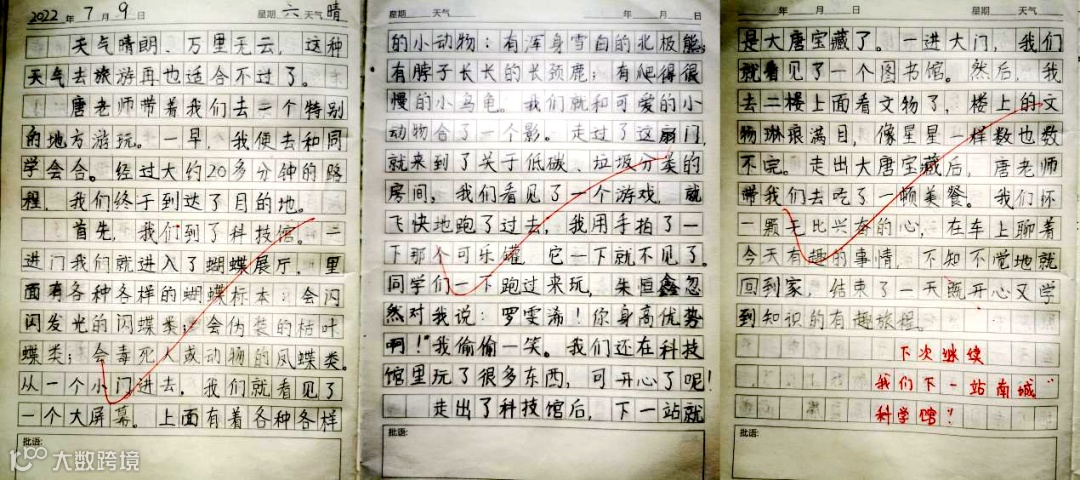 2022年7月9日 星期六 天气晴
天气晴朗、万里无云，这种
天气去旅游再也适合不过了。
唐老师带着我们去一个特别
的地方游玩。一早，我便去和同
学会合。经过大约20多分钟的路
程，我们终于到达了目的地。
首先，我们到了科技馆。一
进门我们就进入了蝴蝶展厅，里
面有各种各样的蝴蝶标本：会闪
闪发光的闪蝶类；会伪装的枯叶
蝶类；会毒死人或动物的凤蝶类。
从一个小门进去，我们就看见了
一个大屏幕。上面有着各种各样
批语:
星期 天气 年 月 日
的小动物：有浑身雪白的北极熊；
有脖子长长的长颈鹿；有爬得很
慢的小乌龟。我们就和可爱的小
动物合了一个影。走过了这扇门，
就来到了关于低碳、垃圾分类的
房间，我们看见了一个游戏，就
飞快地跑了过去，我用手拍了一
下那个可乐罐，它一下就不见了。
同学们一下跑过来玩，朱恒鑫忽
然对我说：罗雯浠！你身高优势
啊！"我偷偷一笑。我们还在科技
馆里玩了很多东西，可开心了呢！
走出了科技馆后，下一站就
批语:
年 月 日 星期 天气
是大唐宝藏了。一进大门，我们
就看见了一个图书馆。然后，我
去二楼上面看文物了，楼上的文
物琳琅满目，像星星一样数也数
不完。走出大唐宝藏后，唐老师
带我们去吃了一顿美餐。我们怀
一颗无比兴奋的心，在车上聊着
今天有趣的事情，不知不觉地就
回到家，结束了一天既开心又学
到知识的有趣旅程。
下次继续
我们下一站南城
科学馆！
批语:
大数跨境